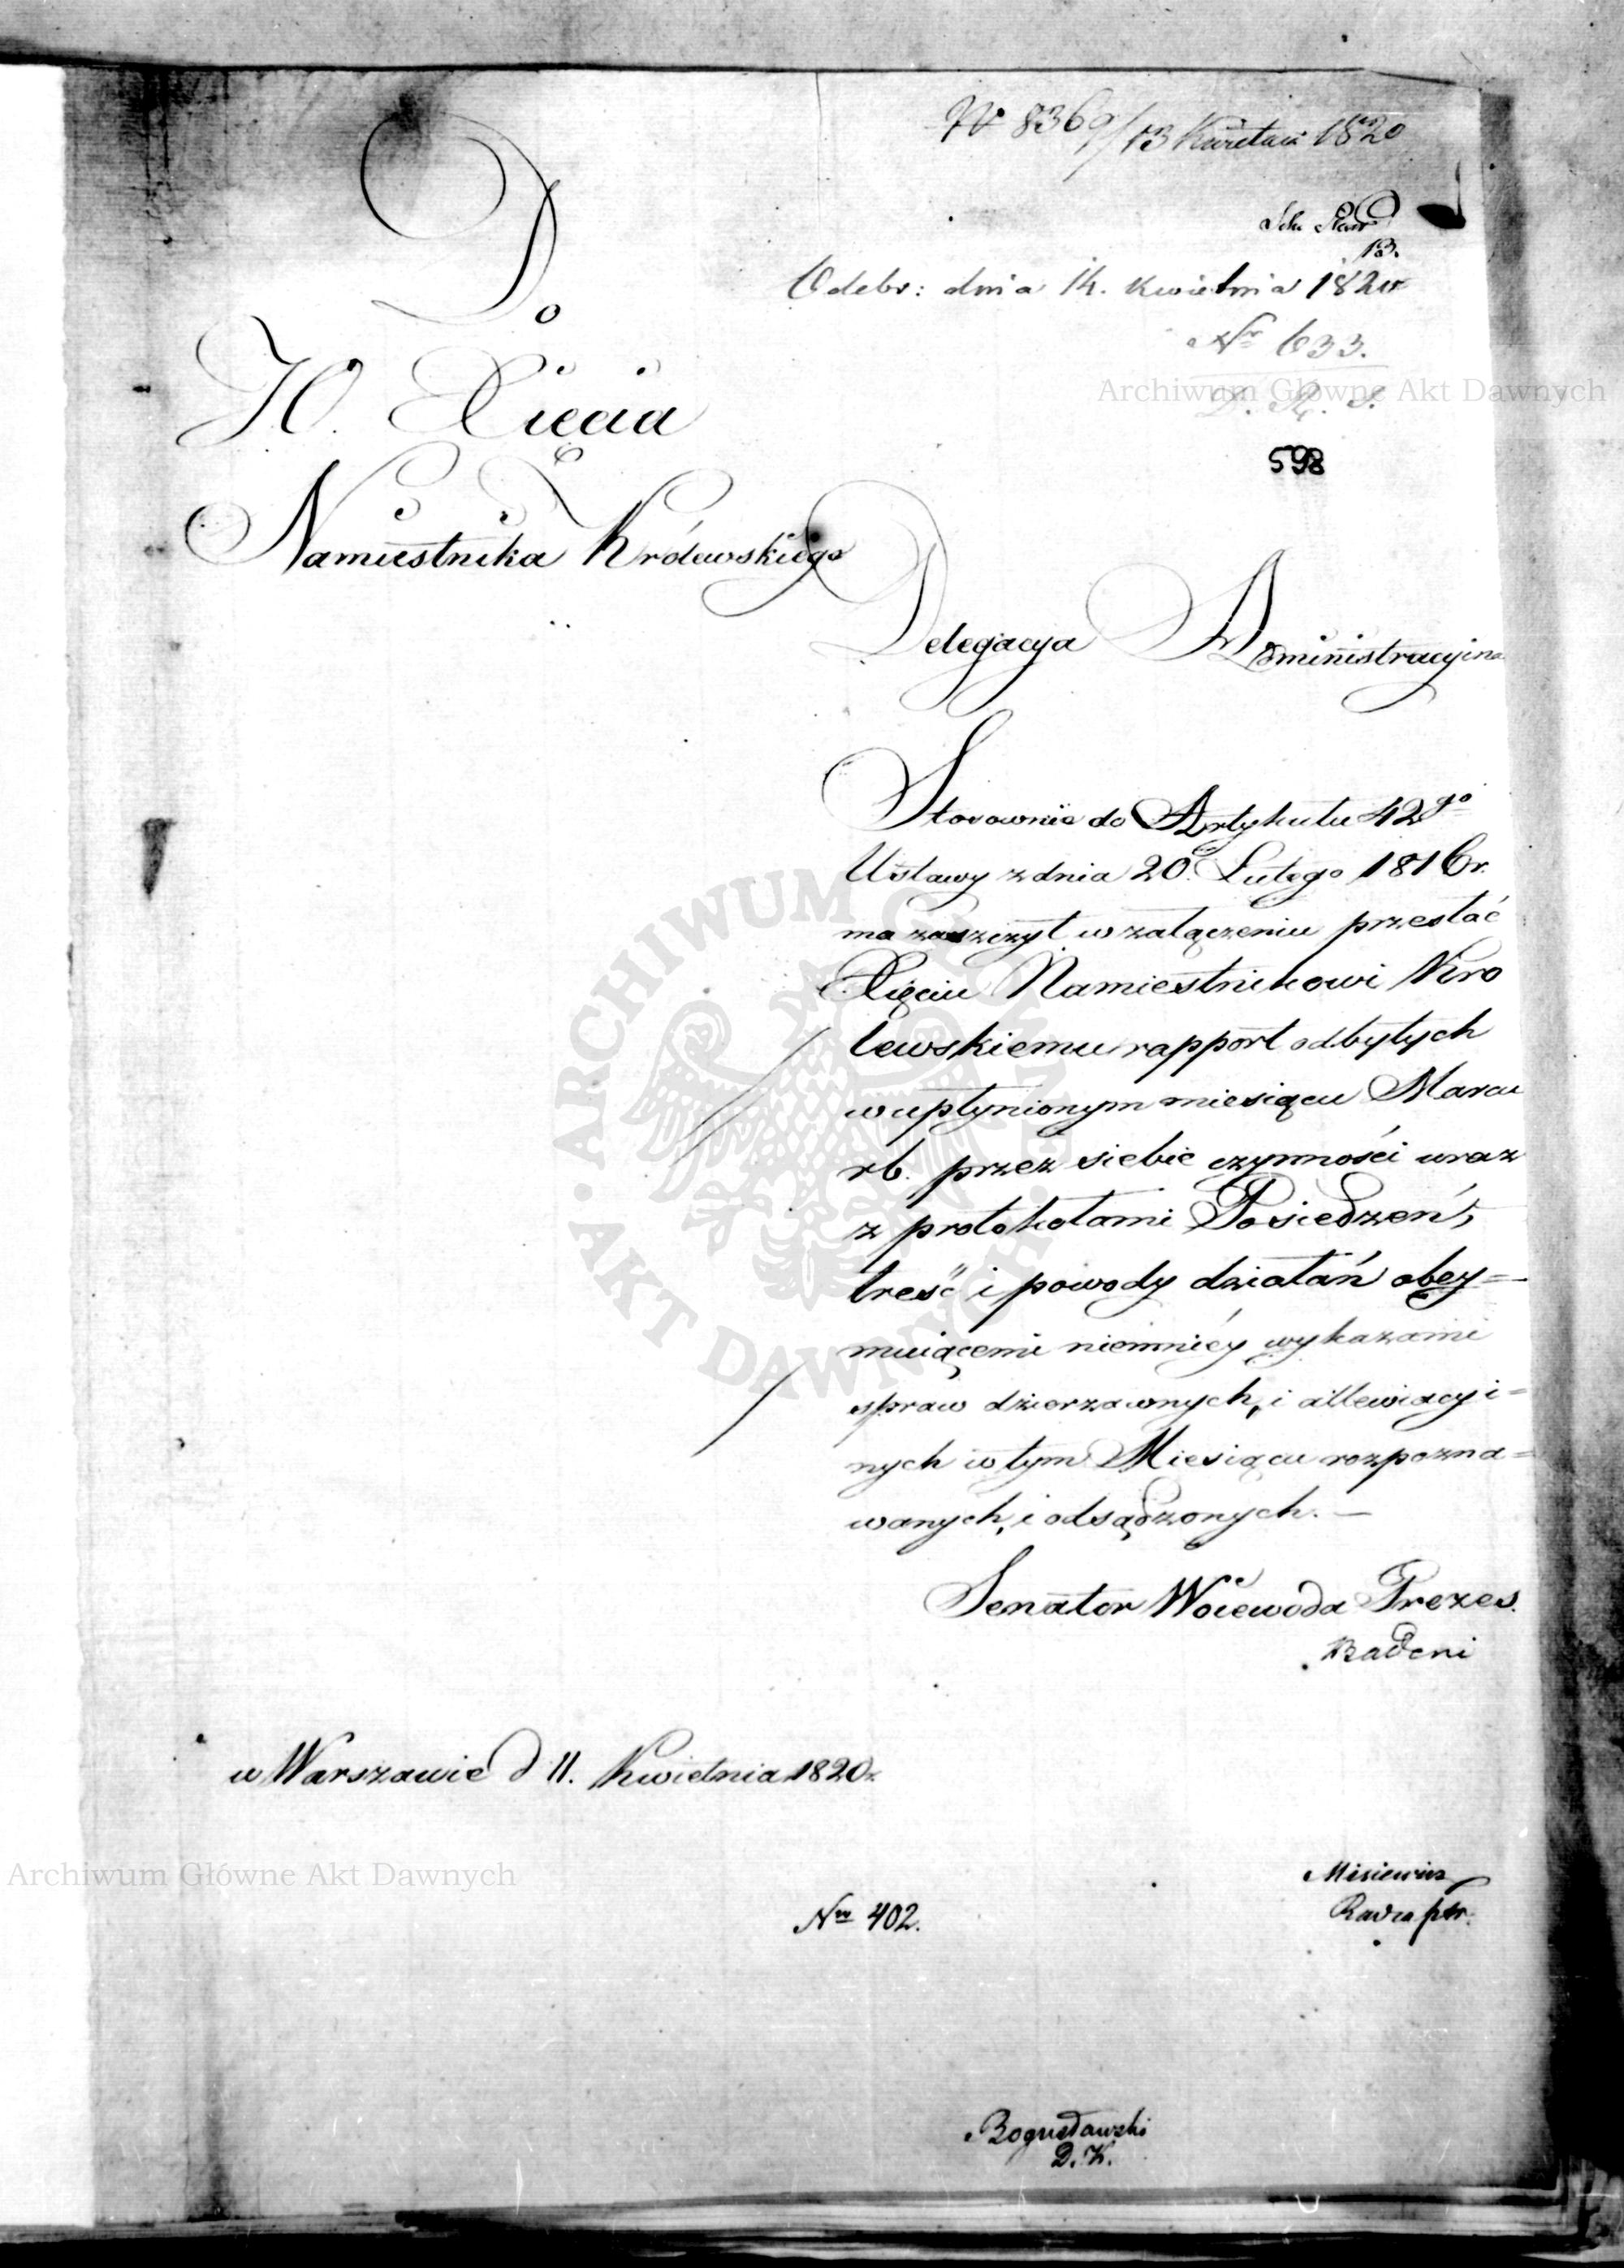 N° 8369/13 Kwietnia 1820
13.
Odebr: dnia 14. Kwietnia 1820r
Nr 633.
598
Do
JO. Xięcia
Namiestnika Królewskiego
Delegacya Administracyina
Stosownie do Artykułu 42go
Ustawy z dnia 20. Lutego 1816r.
ma zaszczyt w załączeniu przesłać
Xięciu Namiestnikowi Kro
lewskiemu rapport odbytych
w upłynionym miesiącu Marcu
rb. przez siebie czynności wraz
z protokołami Posiedzeń,
treść i powody działań obey=
muiącemi niemniéy wykazami
spraw dzierzawnych, i allewiacyi=
nych w tym Miesiącu rozpozna=
wanych, i odsądzonych. —
Senator Woiewoda Prezes.
Badeni
w Warszawie d 11. Kwietnia 1820r.
Misiewicz
Nro 402.
Radca ptr.
Bogusławski
D.K.
Archiwum Główne Akt Dawnych
Archiwum Główne Akt Dawnych
ARCHIWUM GŁÓWNE AKT DAWNYCH